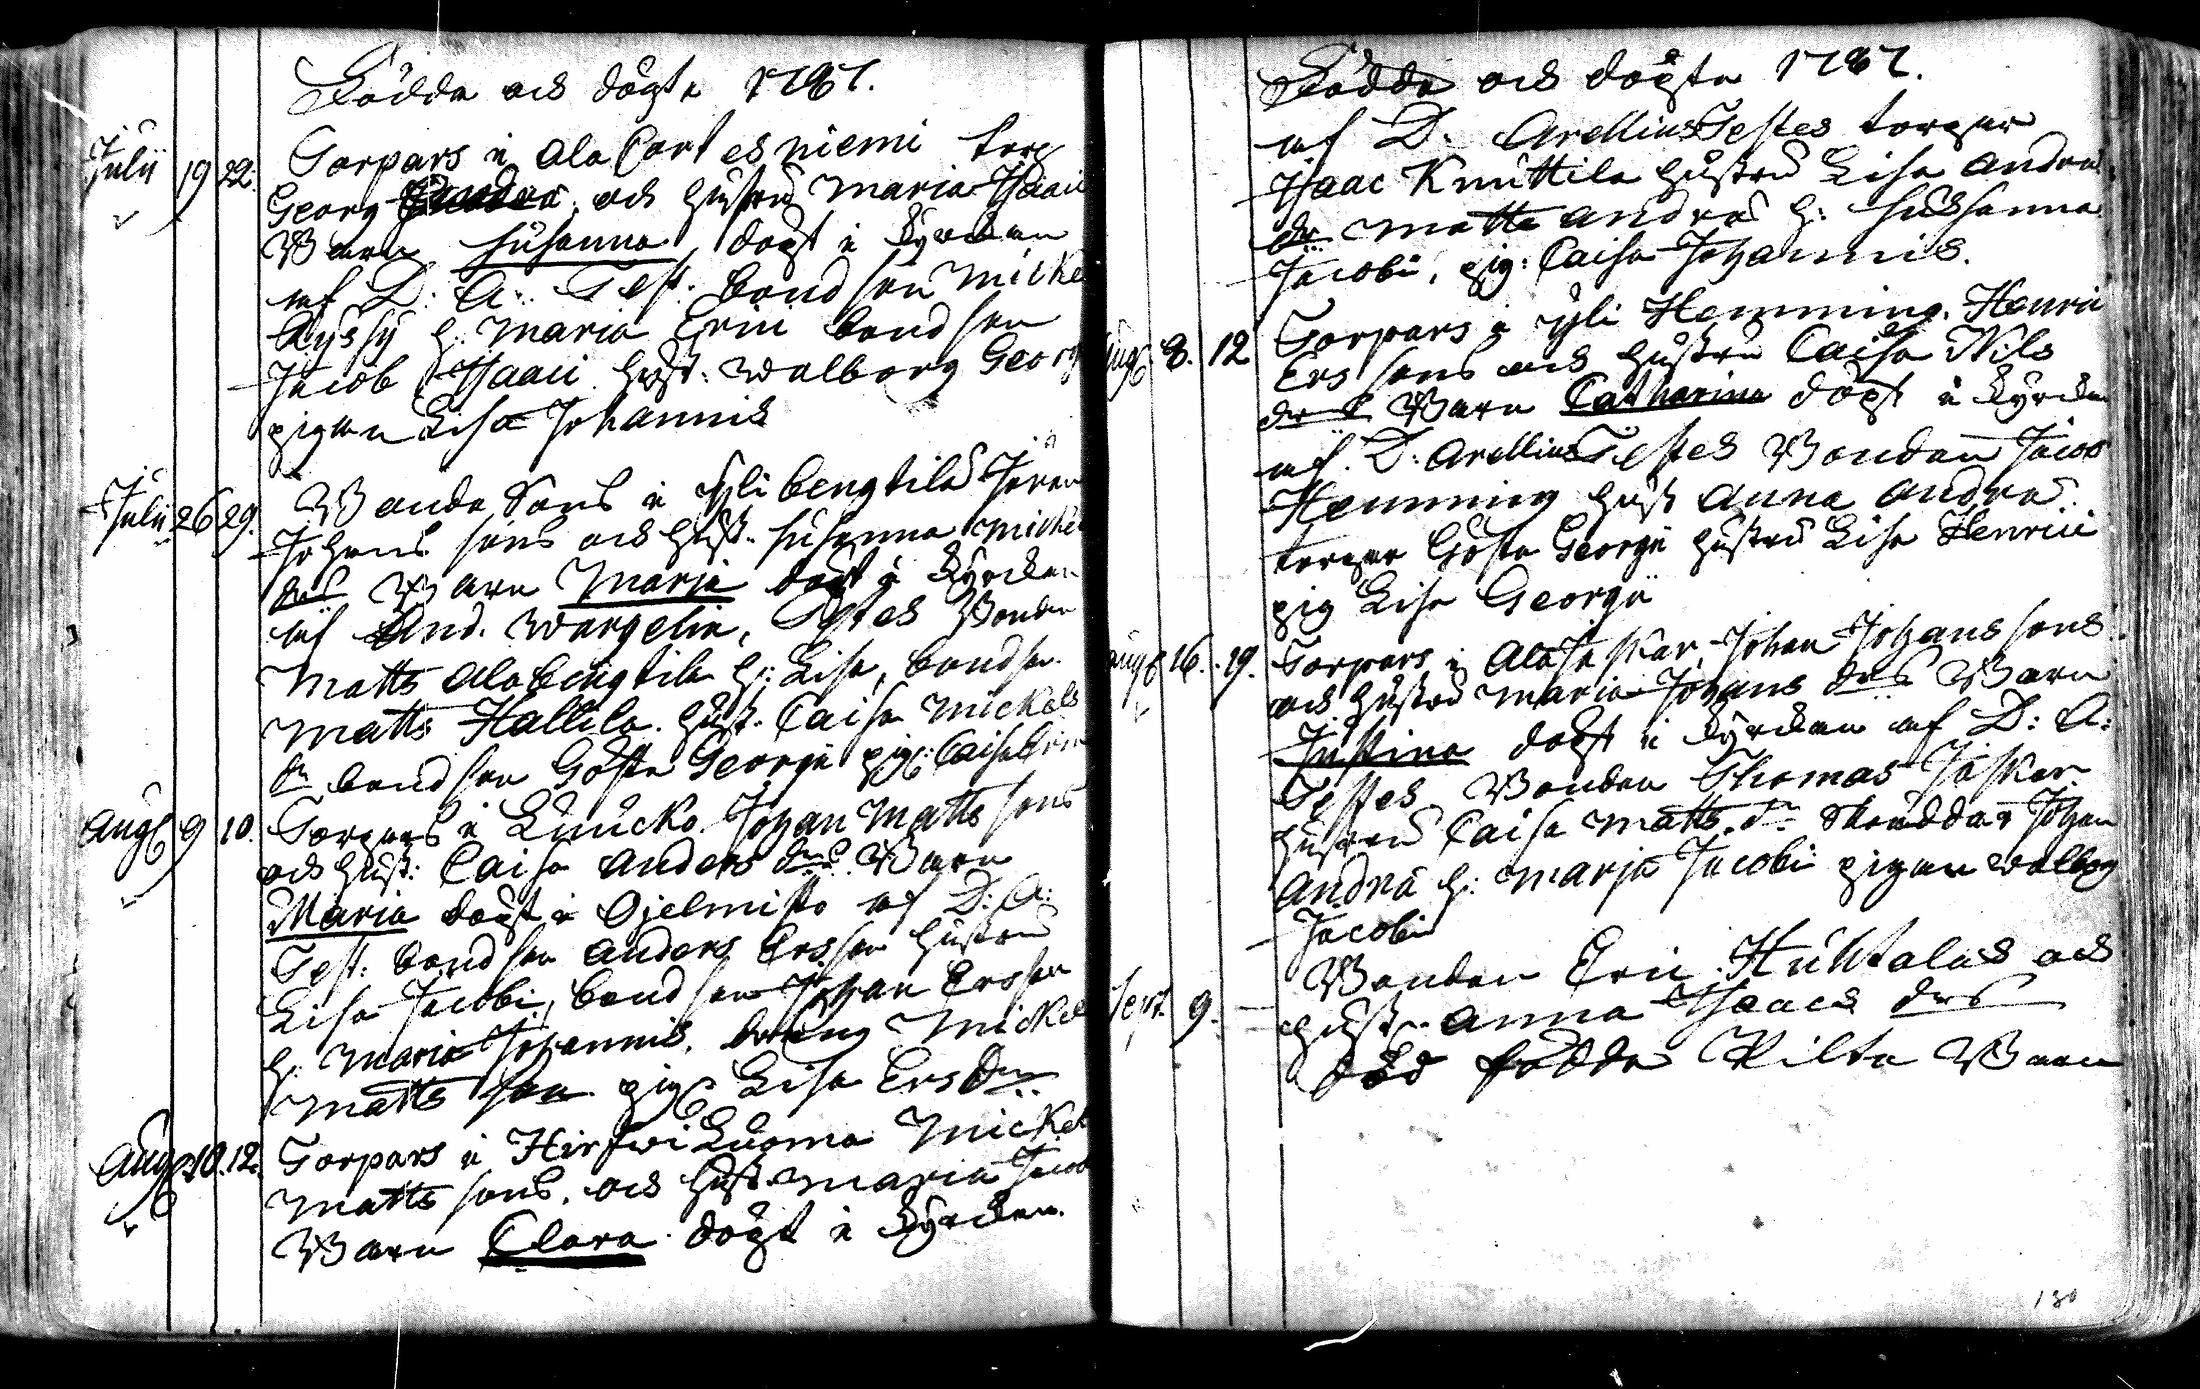 Födde och döpte 1787.
Julii 19 22. Torpars i Ala Cort es niemi torp
Georg och hustru Maria Isaaci
Barn Susanna, döpt i kyrckan
af D: A:. Test: bondson Mickel
Äyssy h: Maria Erici bondson
Jacob Isaaci hust: Walborg Georg
pigan Lisa Johannis
Julii 26 29. Bonda Sons i Yli bengtila Jören
Johans sons och hust. Susanna Michel
drs Barn Maria döpt i kyrckan
af And. Wargelin, Testes Bonden
Matts Alabengtila h: Lisa, bondson
Matts Hallila hust. Caisa Mickels
dr bondson Gösta Georgii pig: Caisa Erici
Aug 9 10. Torpars i Luucko Johan Matts sons
och hust: Caisa Anders drs Barn
Maria döpt i Ojelmisto af D: A:
Test: bondson Anders Ersson hustru
Lisa Jacobi, bondson Johan Ersson
h: Maria Johannis. dräng Mickel
Matts son pig Lisa Ers dr
Aug 10. 12. Torpars i Hirswi Luoma Mickel
Matts sons. och hust Maria Jacob
Barn Clara döpt i kyrckan.
Födde och döpte 1787.
af D. Arellius Testes torpar
Isaac Knuttila hustru Lisa Andræ
dr Matts Andræ h: Susanna
Jacobi, pig: Caisa Johannis.
Aug 8. 12 Torpars i Yli Hemming. Henric
Ers sons och hustru Caisa Nils
drs Barn Catharina döpt i kyrckan
af D: Arellius Testes Bonden Jacob
Hemming hust Anna Andræ
torpar Gösta Georgii hustru Lisa Henrici
pig Lisa Georgii
Aug 16. 19. Torpars i Ala Jaskar, Johan Johans sons
och hustru Maria Johans drs Barn
Justina döpt i kyrckan af D: A:
Testes Bonden Thomas Jaskar
hustru Caisa Matts dr Skräddar Johan
Andræ h: Maria Jacobi pigan Walborg
Jacobi
Sept. 9. Bonden Eric Huhtalas och
hust. Anna Isaacs drs
död födde Barn
130